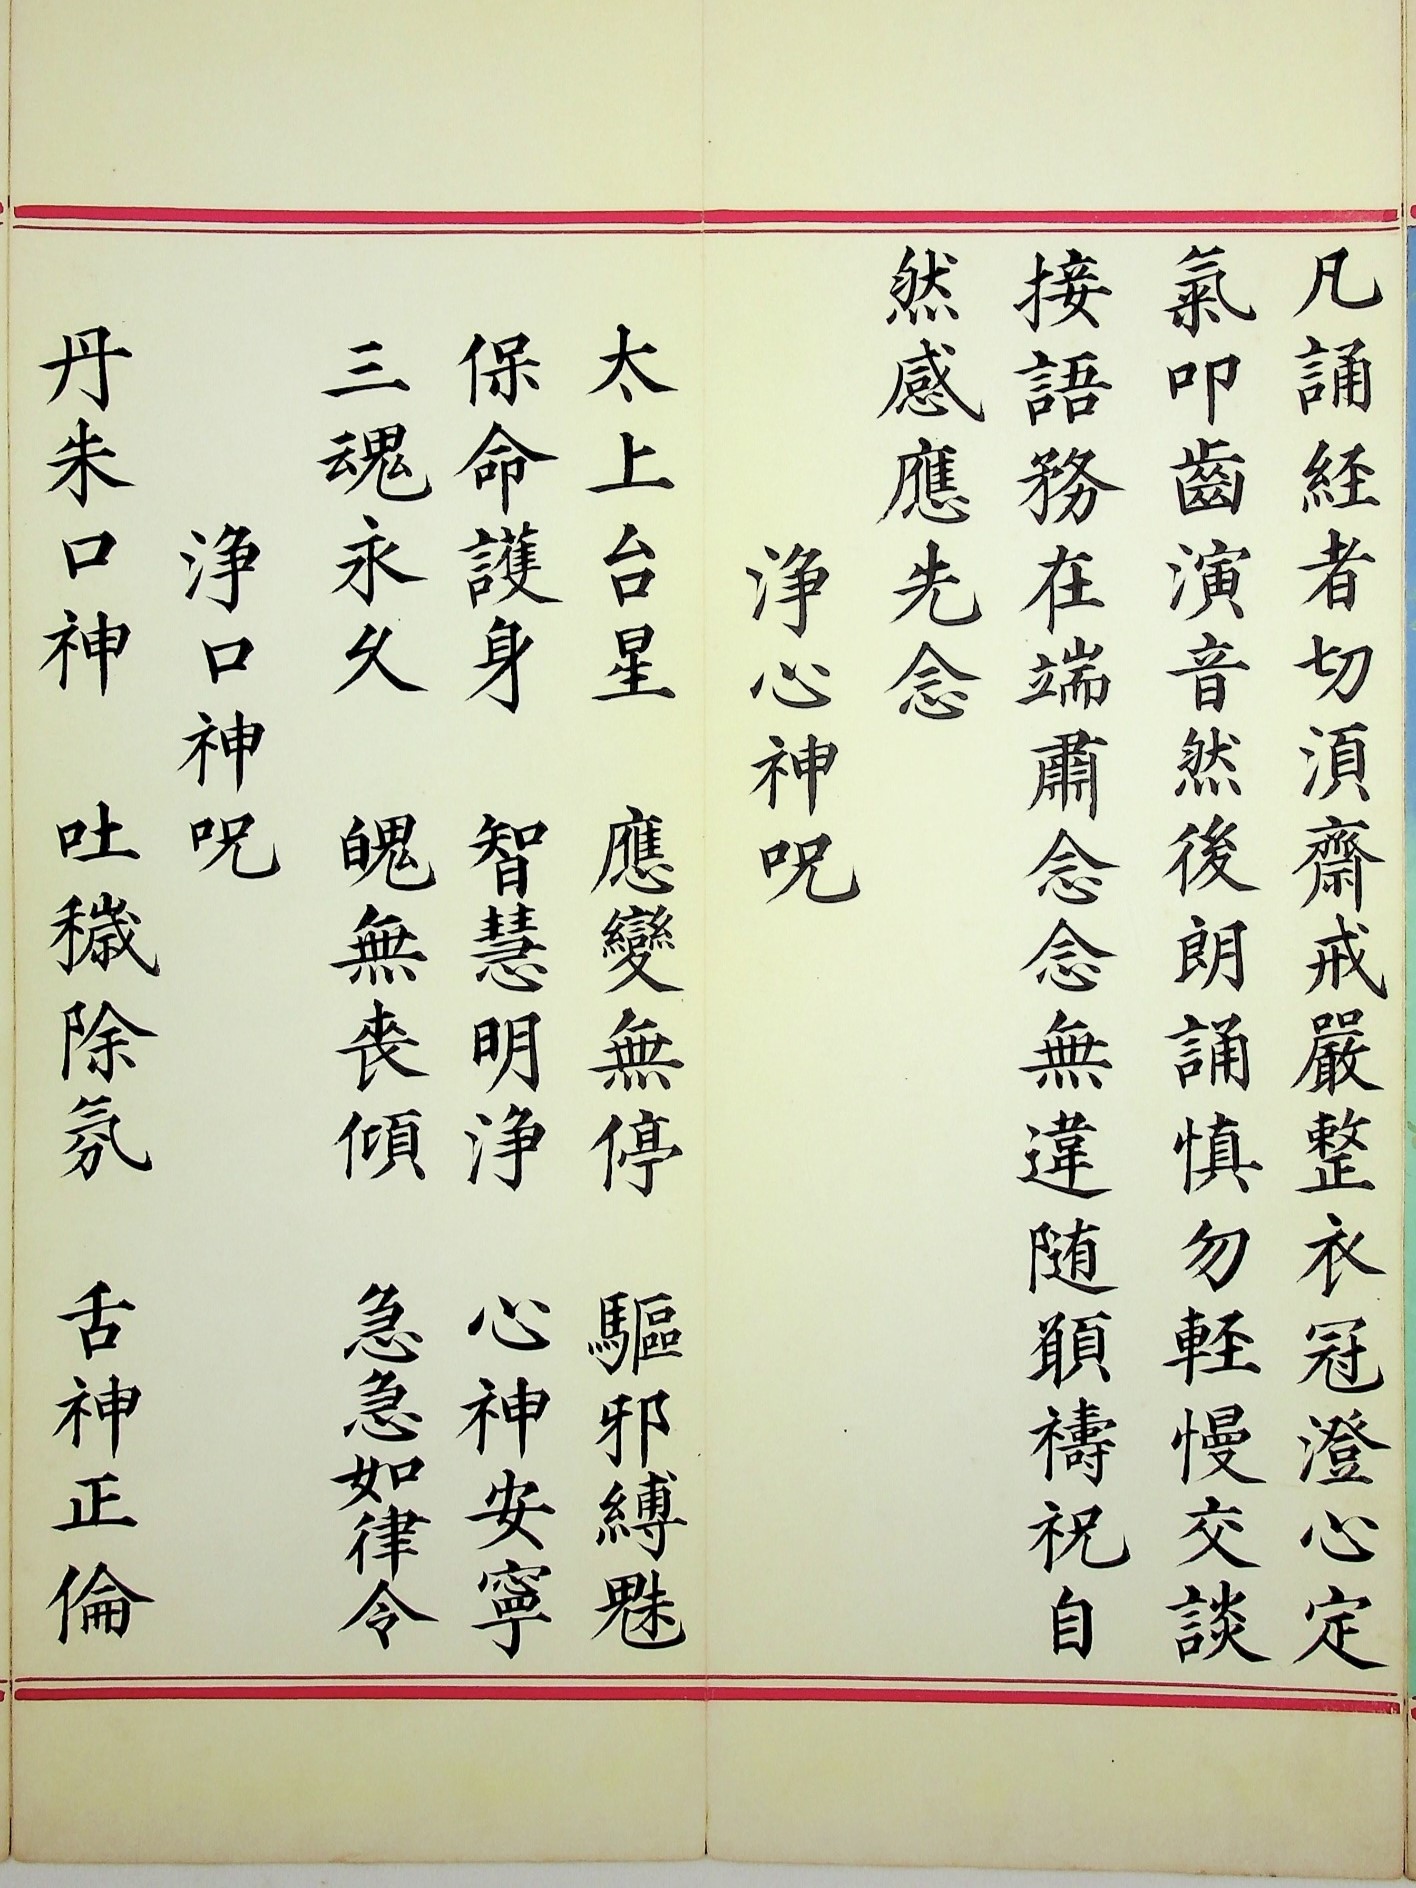 凡誦経者切須齋戒嚴整衣冠澄心定
氣叩齒演音然後朗誦慎勿軽慢交談
接語務在端肅念念無違随顧禱祝自
然感應先念
浄心神呪
太上台星　應變無停　驅邪縛魅
保命護身　智慧明浄　心神安寧
三魂永久　魄無喪傾　急急如律令
浄口神呪
丹朱口神　吐穢除氛　舌神正倫